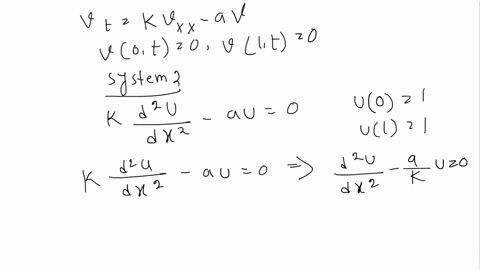 v_t = K v_xx - a v
v(0,t) = 0, v(1,t) = 0
System 2
K d²U/dx² - aU = 0 U(0) = 1
U(1) = 1
K d²U/dx² - aU = 0 ⇒ d²U/dx² - a/K U = 0